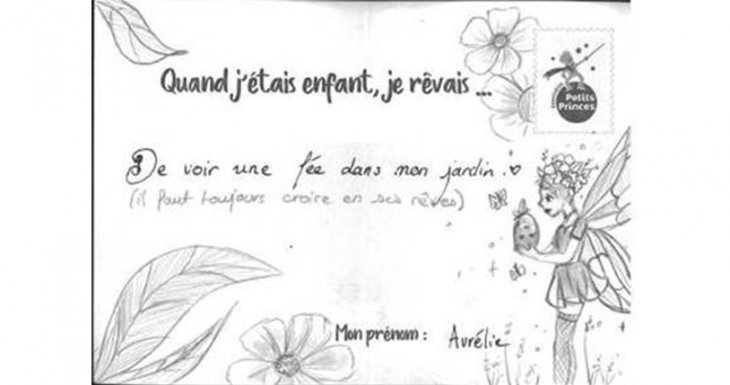 Quand j'étais enfant, je rêvais ...
Petits
Princes
De voir une fée dans mon jardin.
(il faut toujours croire en ses rêves)
Mon prénom : Aurélie